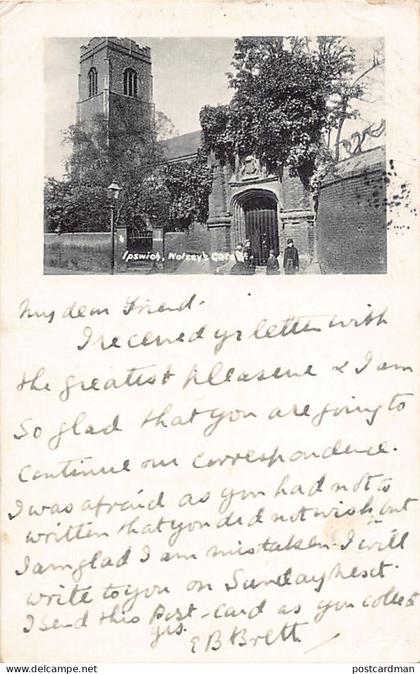 Ipswich, Wolsey's Gate
My dear Friend.
I received yr letter with
the greatest pleasure & I am
so glad that you are going to
continue our correspondence.
I was afraid as you had not
written that you did not wish to but
I am glad I am mistaken. I will
write to you on Sunday next.
I send this Post-card as you collect
E B Brett
postcardman.com